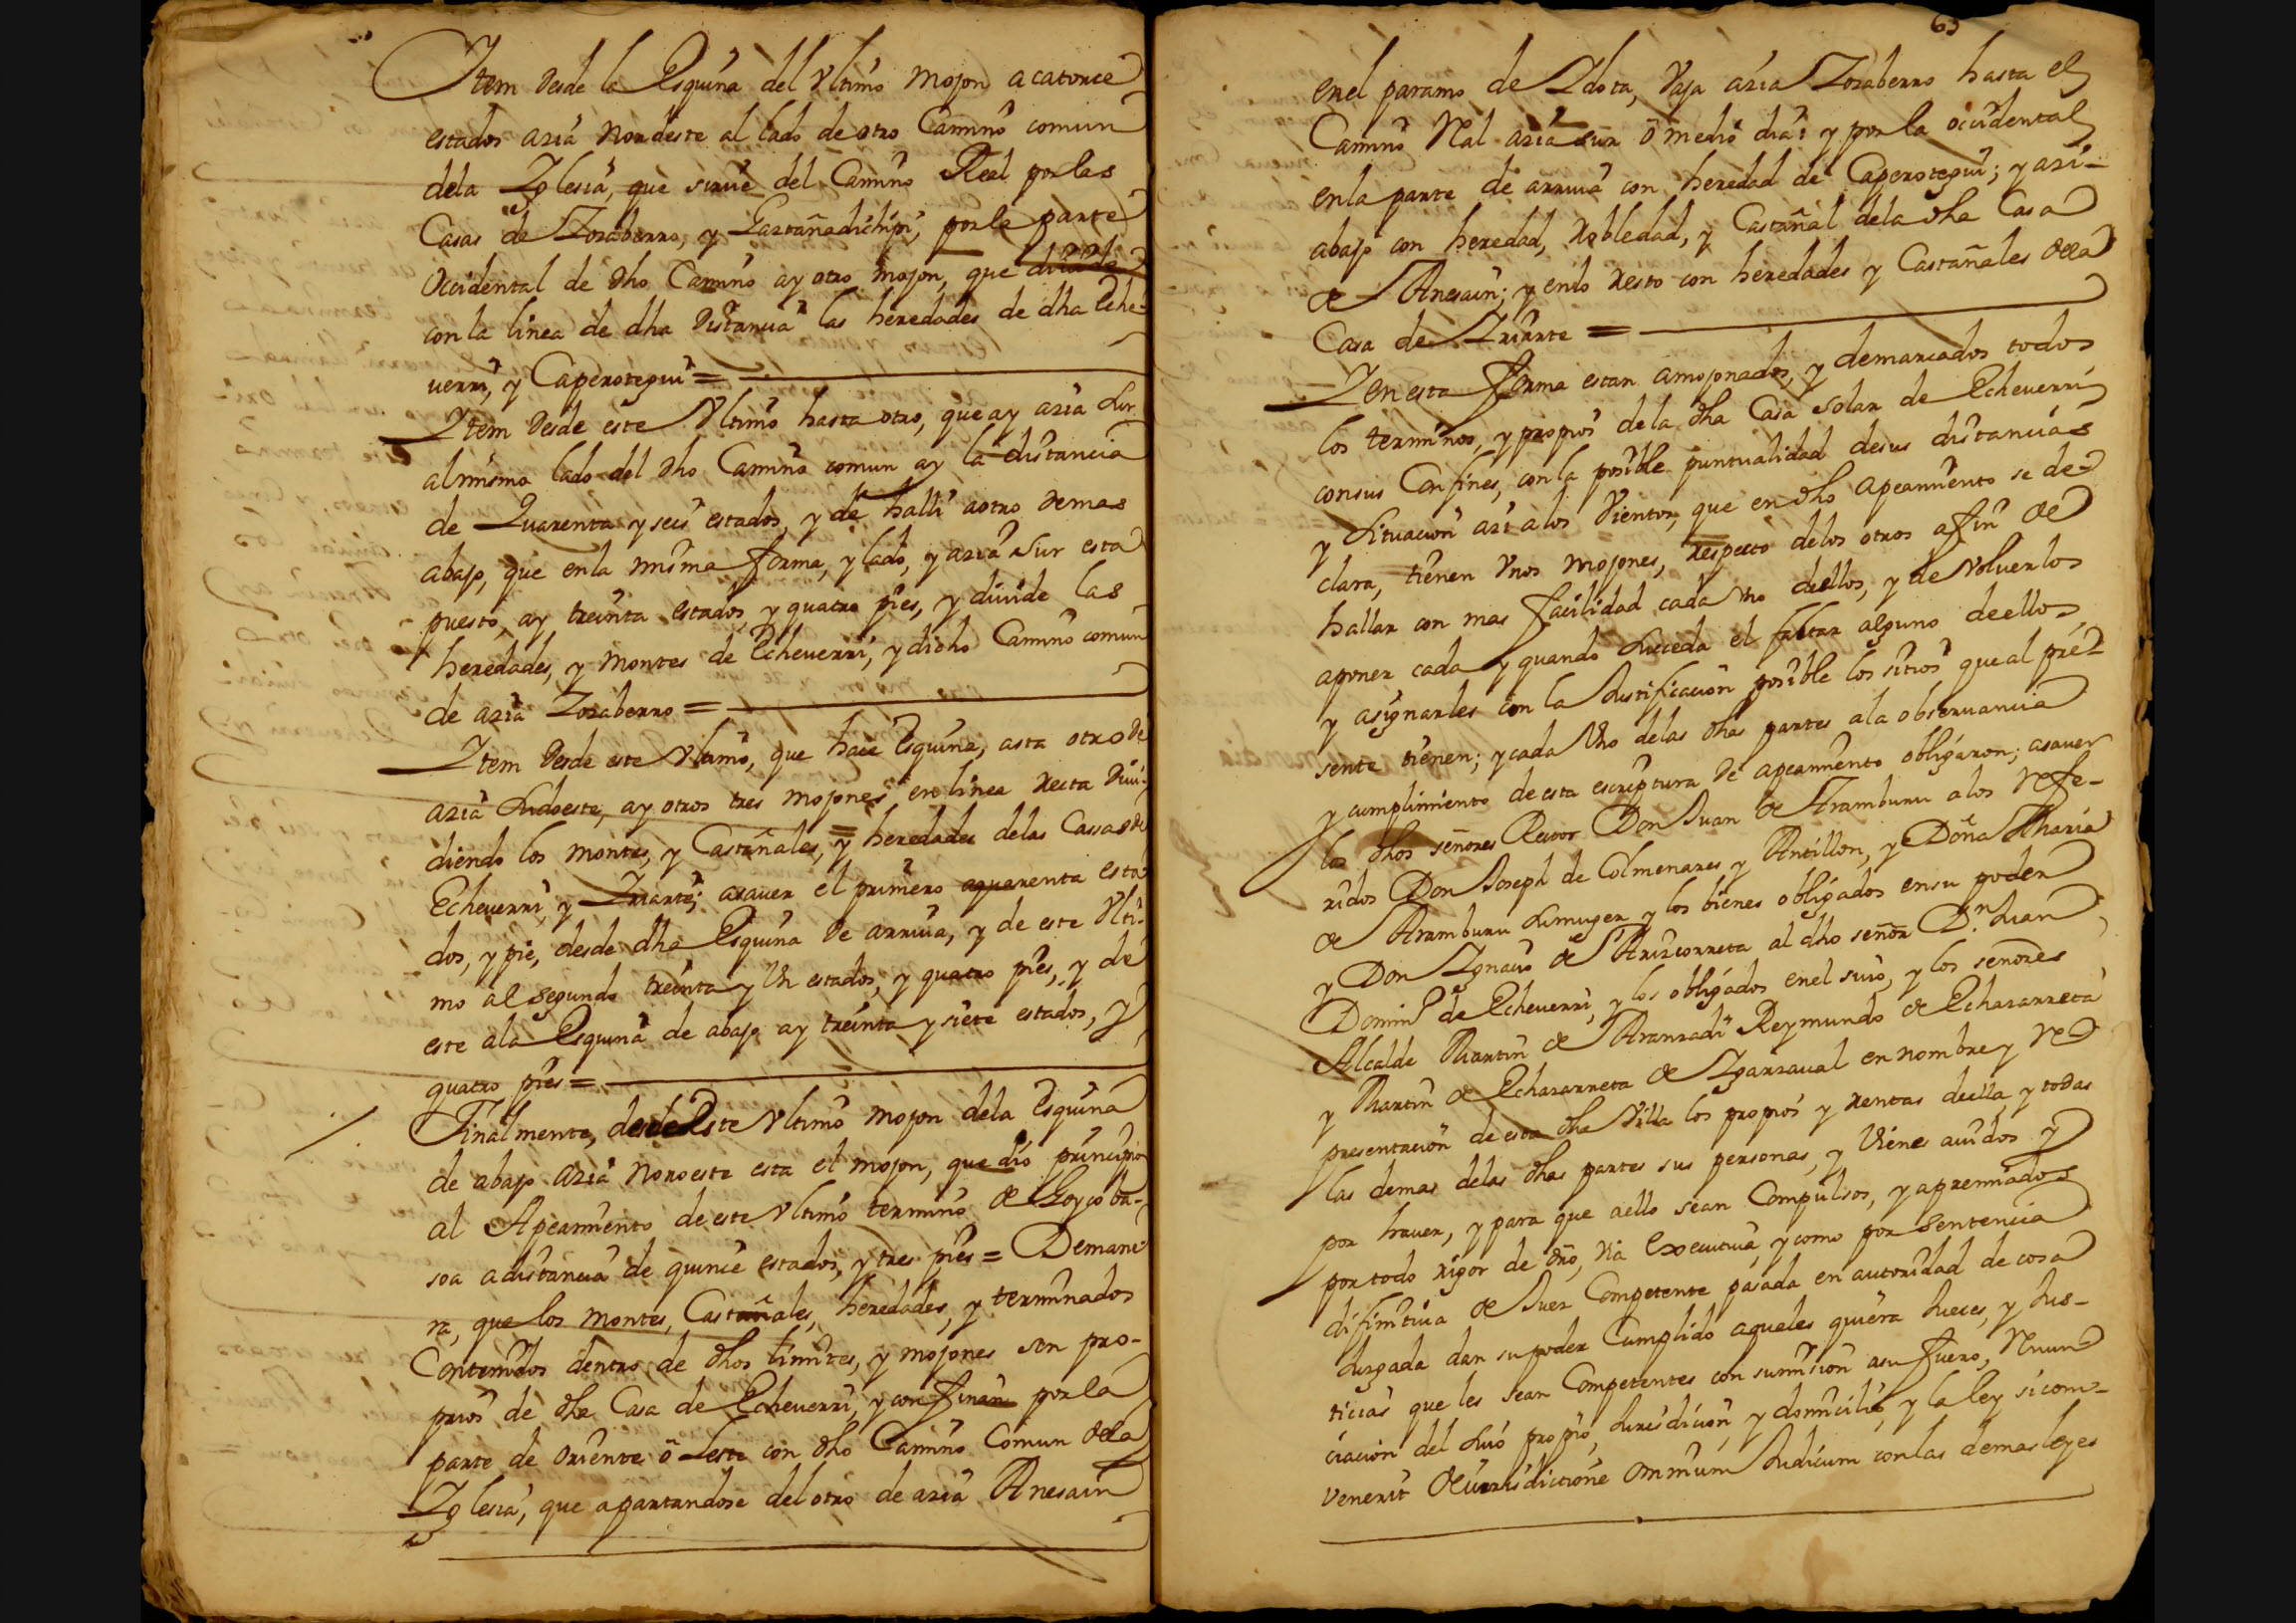 Item desde la Esquina del Vltimo mojon a catorce
estados azia nordeste al lado de otro Camino comun
dela Iglesia, que sirue del Camino Real por las
Casas de Zozaberro, y Gaztañadichipi, por la parte
Occidental de dho Camino ay otro mojon, que diuide
con la linea de dha distancia las heredades de dha Eche-
uerri, y Caperotegui =
Item desde este Vltimo hasta otro, que ay azia sur
al mismo lado del dho Camino comun ay la distancia
de Quarenta y seis estados, y de halli aotro demas
abajo, que enla misma forma, y lado, y azia sur esta
puesto, ay treinta estados, y quatro pies, y diuide las
heredades, y montes de Echeuerri, y dicho Camino comun
de azia Zozaberro =
Item desde este Vltimo, que hace Esquina, asta otro de
azia Sudoeste, ay otros tres mojones en linea recta diui-
diendo los montes, y Castañales, y heredades delas Cassas de
Echeuerri, y Iriarte; asauer el primero aquarenta esta
dos, y pie, desde dha Esquina de arriua, y de este Vlti-
mo al segundo treinta y Vn estados, y quatro pies, y de
este ala Esquina de abajo ay treinta y siete estados, y
quatro pies =
Finalmente, desde Este Vltimo mojon dela Esquina
de abajo azia noroeste esta el mojon, que dio principio
al Apeamiento de este Vltimo termino de Goycoba-
soa adistancia de quince estados, y tres pies = De mane
ra, que los montes, Castañales, heredades, y terminados
Contenidos dentro de dhos limites, y mojones son pro-
prios de dha Casa de Echeuerri, y confinan por la
parte de oriente ò Leste con dho Camino Comun dela
Iglesia, que apartandose del otro de azia Anesain
63
enel paramo de Idota, Vaja azia Zozaberro hasta el
Camino Real azia sur ò medio dia: y por la ocidental
enla parte de arriua con heredad de Caperotegui; y azi-
abajo con heredad, Robledad, y Castañal dela dha Casa
de Anesain; y enlo resto con heredades y Castañales dela
Casa de Iriarte =
Y en esta forma estan amojonados, y demarcados todos
los terminos, y propios dela dha Casa solar de Echeuerri
consus Confines, con la posible puntualidad desus distancias
y situacion azi alos Vientos, que en dho apeamiento se de-
clara, tienen Vnos mojones, respecto delos otros afin de
hallar con mas facilidad cada Vno dellos, y de Voluerlos
aponer cada y quando suceda el faltar alguno deellos,
y asignarles con la Justificacion posible los sitios que al pre-
sente tienen; y cada Vno delas dhas partes ala obseruancia
y cumplimiento de esta escriptura de apeamiento obligaron; asauer
los dhos señores Rector Don Juan de Aramburu alos Refe-
ridos Don Joseph de Colmenares y Antillon, y Doña Maria
de Aramburu sumuger y los bienes obligados ensu poder
y Don Ignacio de Arizcorreta al dho señor Dn. Juan
Domin.o de Echeuerri, y los obligados enel suio, y los señores
Alcalde Martin de Aranzadi Reymundo de Echazarreta
y Martin de Echazarreta de Igarzaual en nombre y Re
presentacion de esta dha Villa los propios y rentas deella, y todas
las demas delas dhas partes sus personas, y Vienes auidos y
por hauer, y para que aello sean Compulsos, y apremiados
por todo rigor de dro, Via executiua, y como por sentencia
difinitiua de Juez Competente pasada en autoridad de cosa
Juzgada dan su poder Cumplido aquelesquiera Jueces, y Jus-
ticias que les sean Competentes con sumision asu fuero, Renun
ciacion del suio propio, Jurisdicion, y domicilio, y la ley sicon-
venerit de iurisdictione omnium Judicum con las demas leyes